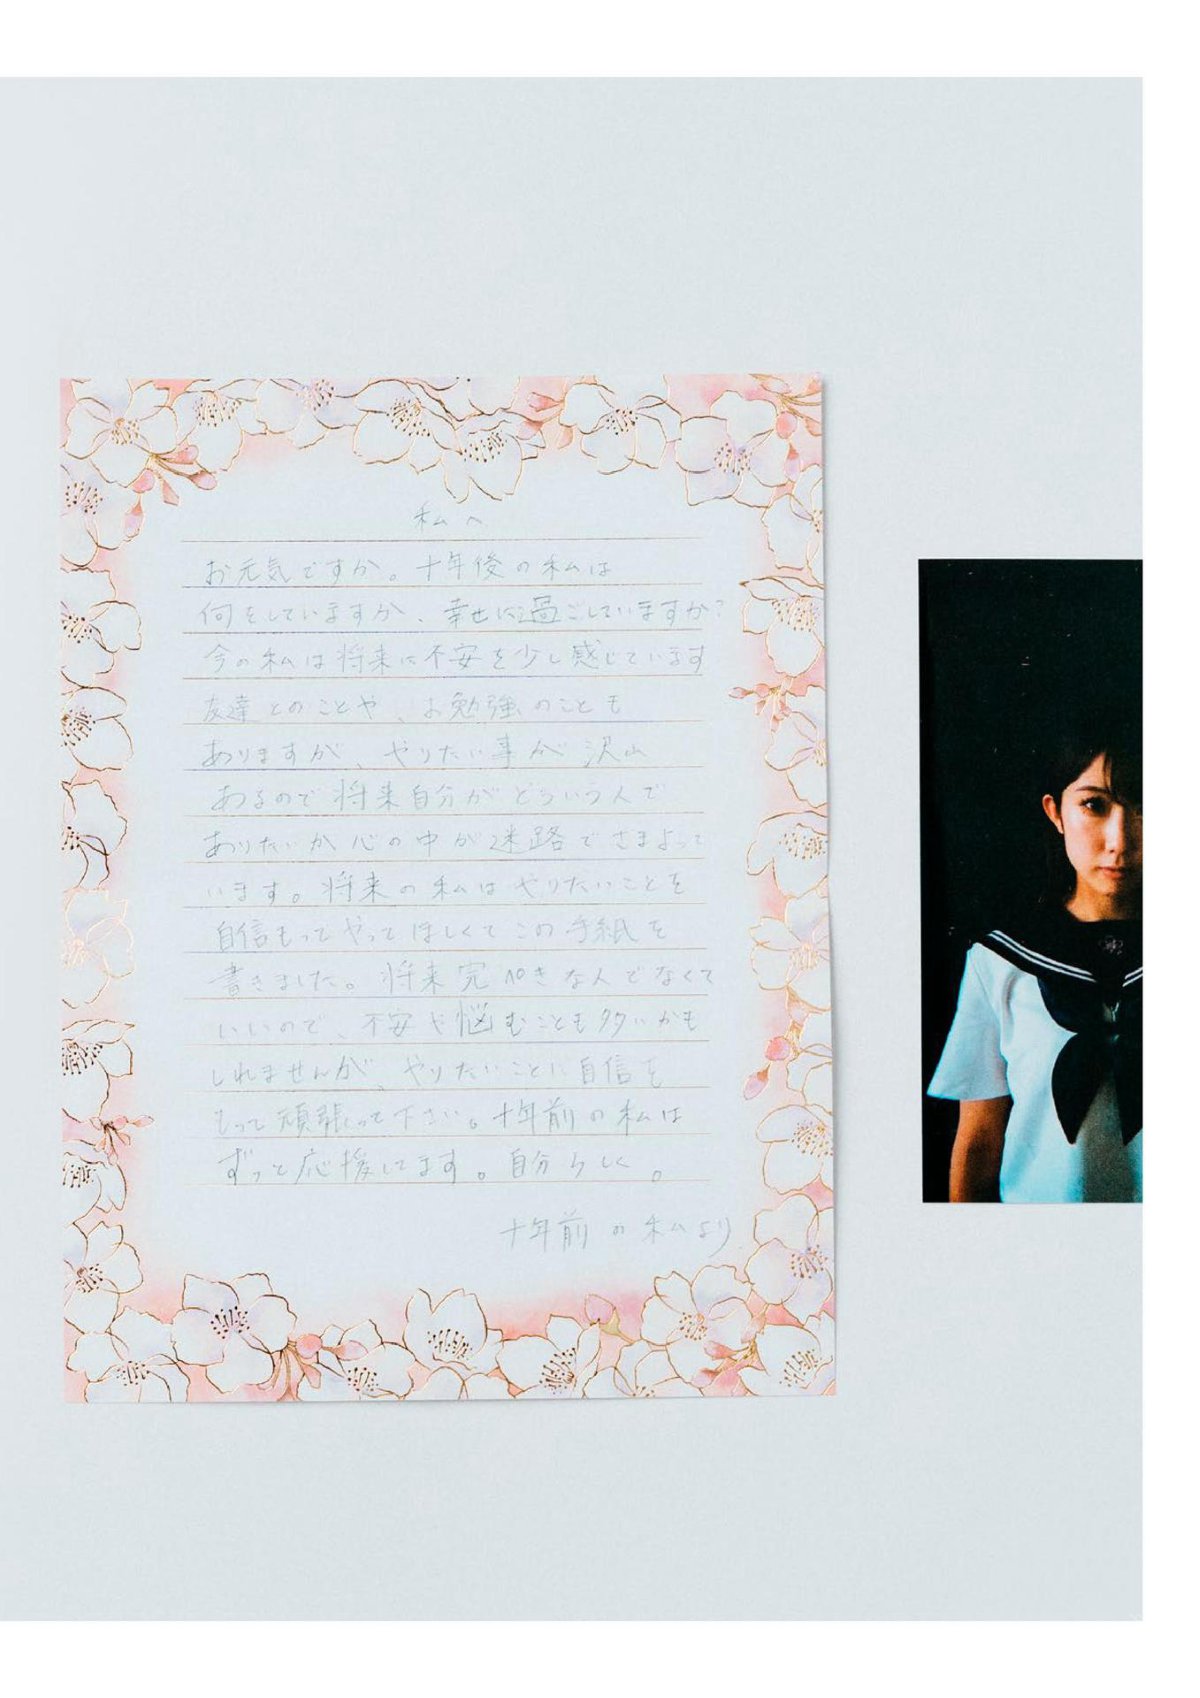 私へ
お元気ですか。十年後の私は
何をしていますか、幸せに過ごしていますか?
今の私は将来に不安を少し感じています
友達とのことや、お勉強のことも
ありますが、やりたい事が沢山
あるので将来自分がどういう人で
ありたいか心の中が迷路でさまよって
います。将来の私はやりたいことを
自信もってやってほしくてこの手紙を
書きました。将来完ぺきな人でなくて
いいので、不安や悩むことも多いかも
しれませんが、やりたいことに自信を
もって頑張って下さい。十年前の私は
ずっと応援してます。自分らしく。
十年前の私より